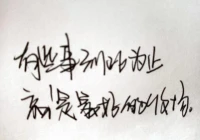 有些事到此为止
就是最好的结局.